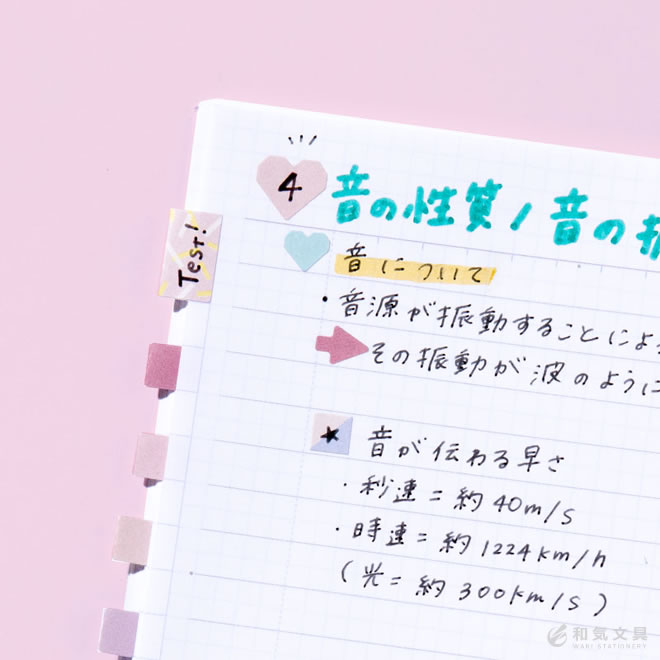 4 音の性質/音の振
Test!
音について
・音源が振動することによ
その振動が波のように
★ 音が伝わる早さ
・秒速=約40m/s
・時速=約1224km/h
(光=約300km/s)
和気文具
WAKI STATIONERY